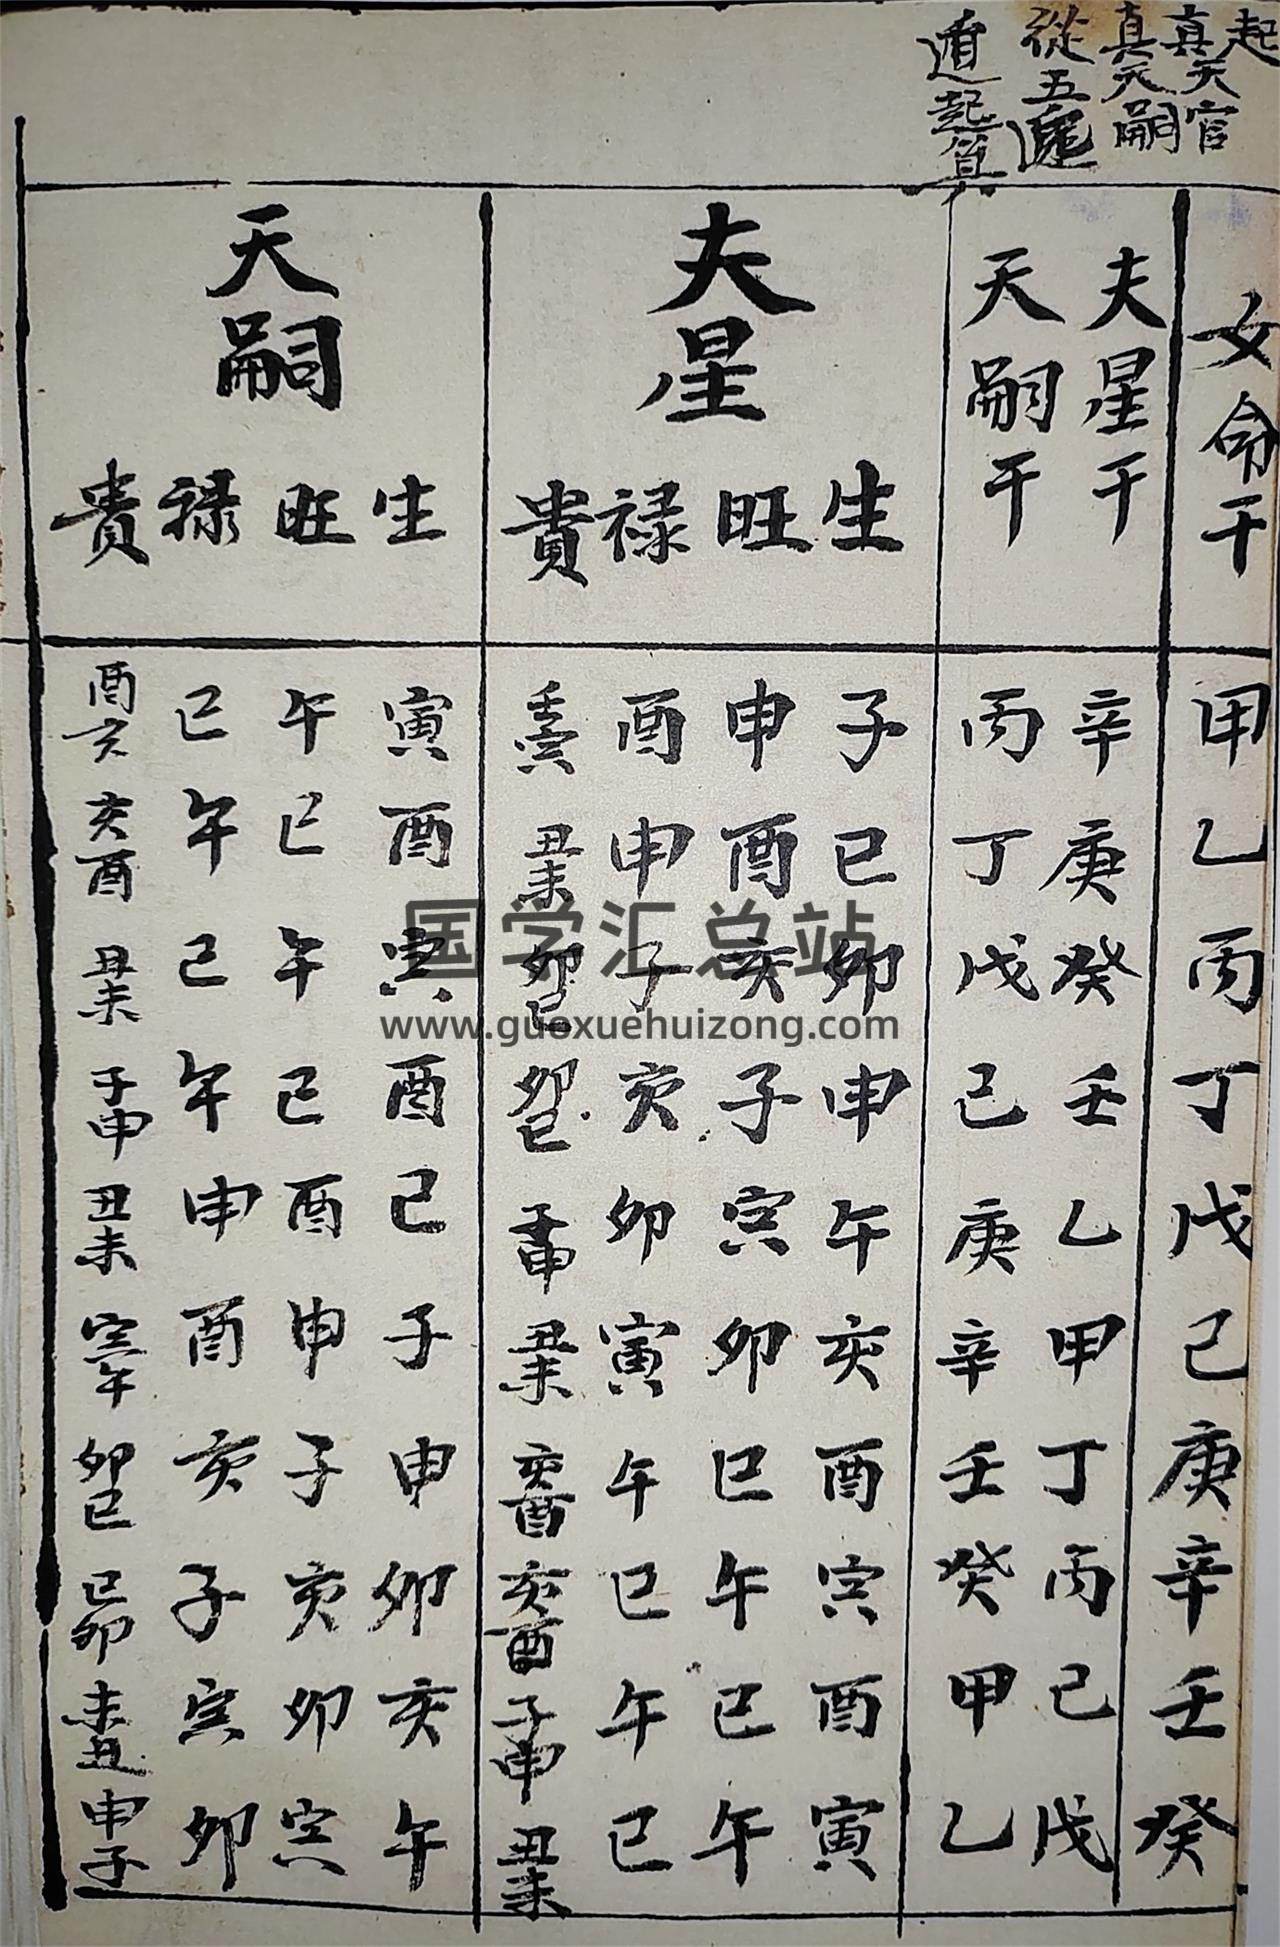 起
真天官
真天嗣
從五
遁起算
女命干 甲乙丙丁戊己庚辛壬癸
夫星干 辛庚癸壬乙甲丁丙己戊
天嗣干 丙丁戊己庚辛壬癸甲乙
夫星
生 子巳卯申午亥酉寅酉寅
旺 申酉亥子寅卯巳午巳午
禄 酉申子亥卯寅午巳午巳
貴 寅 丑未 卯巳 卯巳 子申 丑未 亥酉 亥酉 子申 丑未
天嗣
生 寅酉寅酉巳子申卯亥午
旺 午巳午巳酉申子亥卯寅
禄 巳午巳午申酉亥子寅卯
貴 酉亥 亥酉 丑未 子申 丑未 寅午 卯巳 巳卯 未丑 申子
国学汇总站
www.guoxuehuizong.com